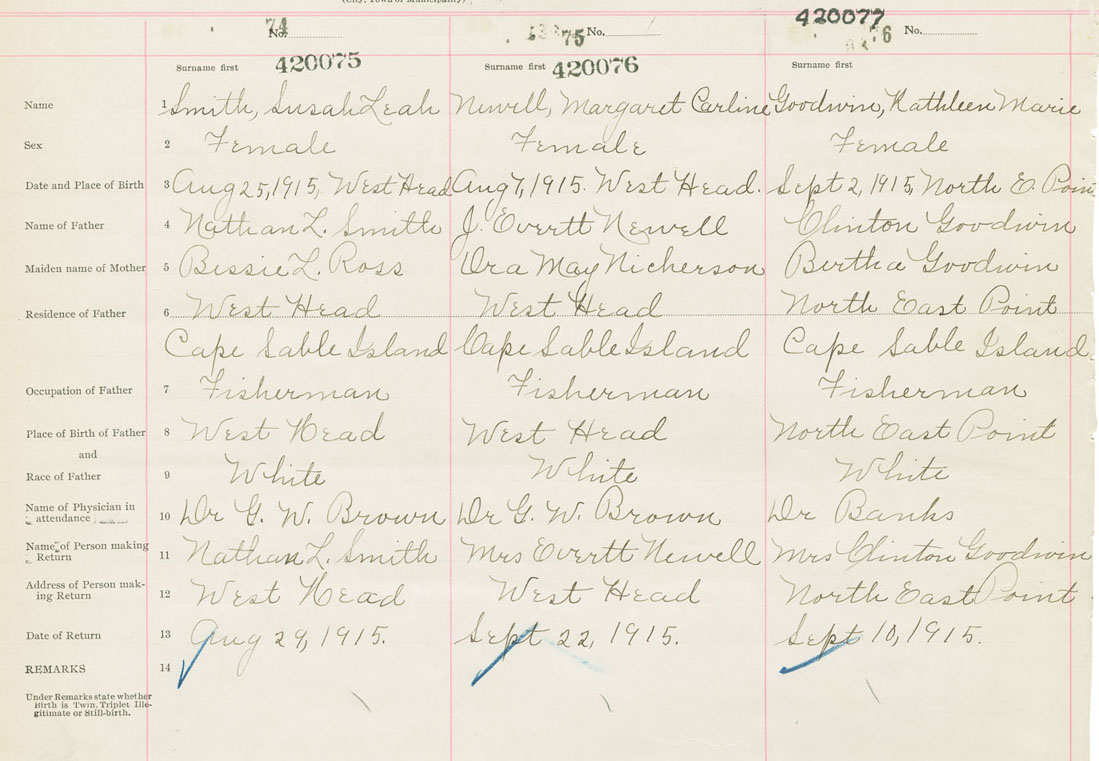 (City, Town or Municipality)
74 No. 75 No. 420077 76 No.
Surname first 420075 Surname first 420076 Surname first
Name 1 Smith, Susah Leah Newell, Margaret Carline Goodwin, Kathleen Marie
Sex 2 Female Female Female
Date and Place of Birth 3 Aug 25, 1915, West Head Aug 7, 1915. West Head. Sept 2, 1915, North E. Poin
Name of Father 4 Nathan L. Smith J. Evertt Newell Clinton Goodwin
Maiden name of Mother 5 Bessie L. Ross Ora May Nickerson Bertha Goodwin
Residence of Father 6 West Head West Head North East Point
Cape Sable Island Cape Sable Island Cape Sable Island
Occupation of Father 7 Fisherman Fisherman Fisherman
Place of Birth of Father 8 West Head West Head North East Point
and
Race of Father 9 White White White
Name of Physician in
attendance 10 Dr G. W. Brown Dr G. W. Brown Dr Banks
Name of Person making
Return 11 Nathan L. Smith Mrs Evertt Newell Mrs Clinton Goodwin
Address of Person mak-
ing Return 12 West Head West Head North East Point
Date of Return 13 Aug 29, 1915. Sept 22, 1915. Sept 10, 1915.
REMARKS 14
Under Remarks state whether
Birth is Twin, Triplet Ille-
gitimate or Still-birth.